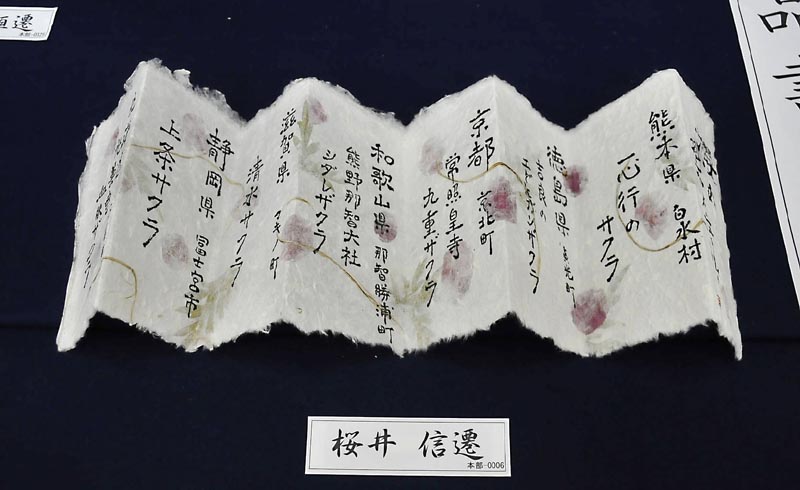 熊本県 白水村
一心行の
サクラ
徳島県
京都 京北町
常照皇寺
九重ザクラ
和歌山県 那智勝浦町
熊野那智大社
シダレザクラ
滋賀県 マキノ町
清水サクラ
静岡県 富士宮市
上条サクラ
桜井 信遷
本部-0006